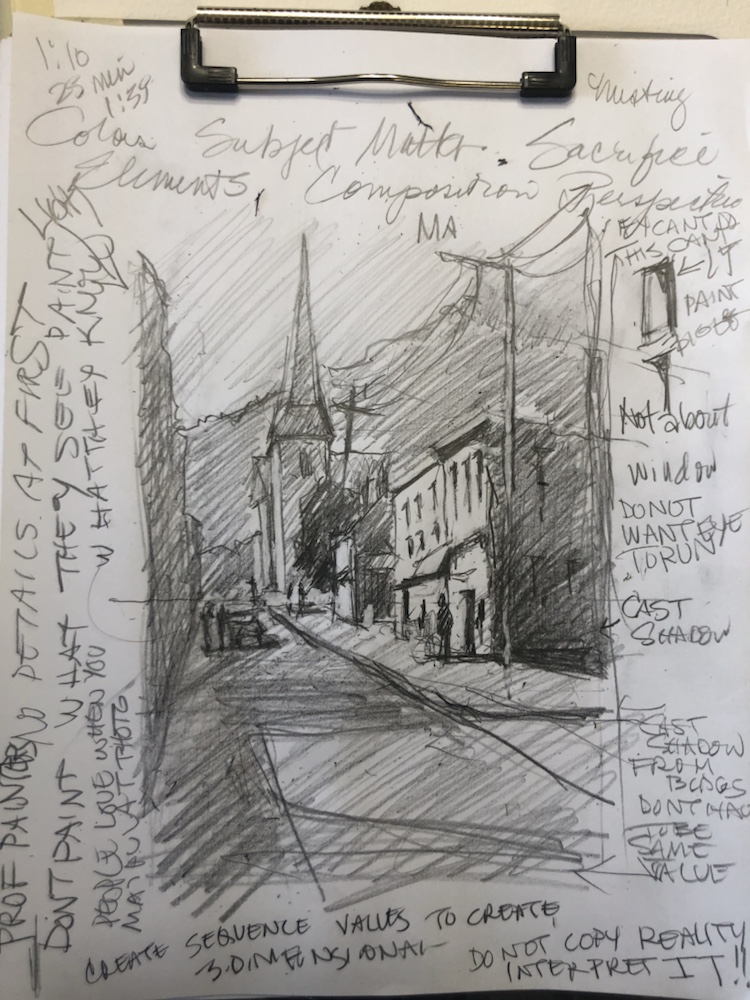 1:10
25 min
1:35
Misting
Colors Subject Matter. Sacrifice
Elements, Composition Perspective
MA
THIS CAN
PAINT
Not about
window
DO NOT
WANT EYE
TO RUN
CAST
SHADOW
CAST
SHADOW
FROM
BLDGS
DONT HAV
TO BE
SAME
VALUE
PROF PAINTERS NO DETAILS AT FIRST
DONT PAINT WHAT THEY SEE PAINT
WHAT THEY KNOW
PEOPLE LOVE WHEN YOU
MATRIX AT PHOTO
CREATE SEQUENCE VALUES TO CREATE
3-DIMENSIONAL
DO NOT COPY REALITY
INTERPRET IT!!